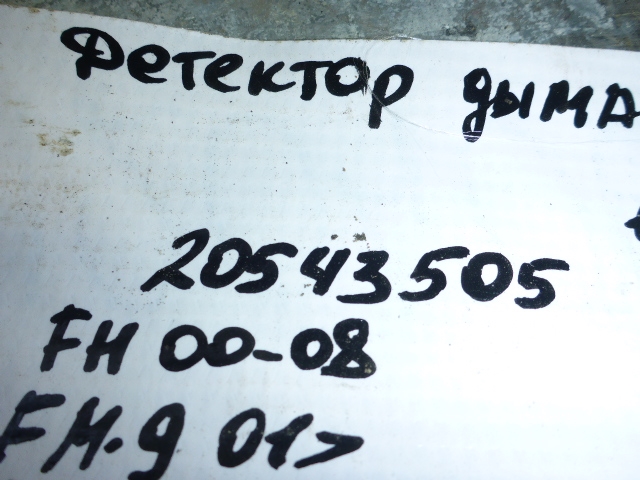 Детектор дыма
20543505
FH 00-08
FM.9 01>